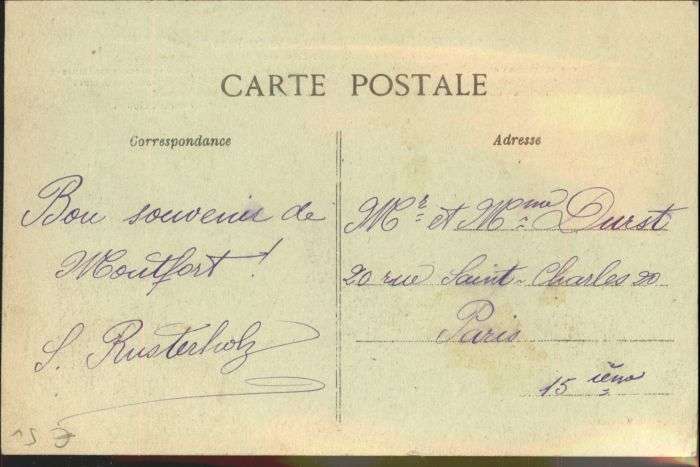 CARTE POSTALE
Correspondance
Bon souvenir de
Montfort !
S. Rusterholz
Adresse
Mr et Mme Durst
20 rue Saint-Charles 20
Paris
15 ième